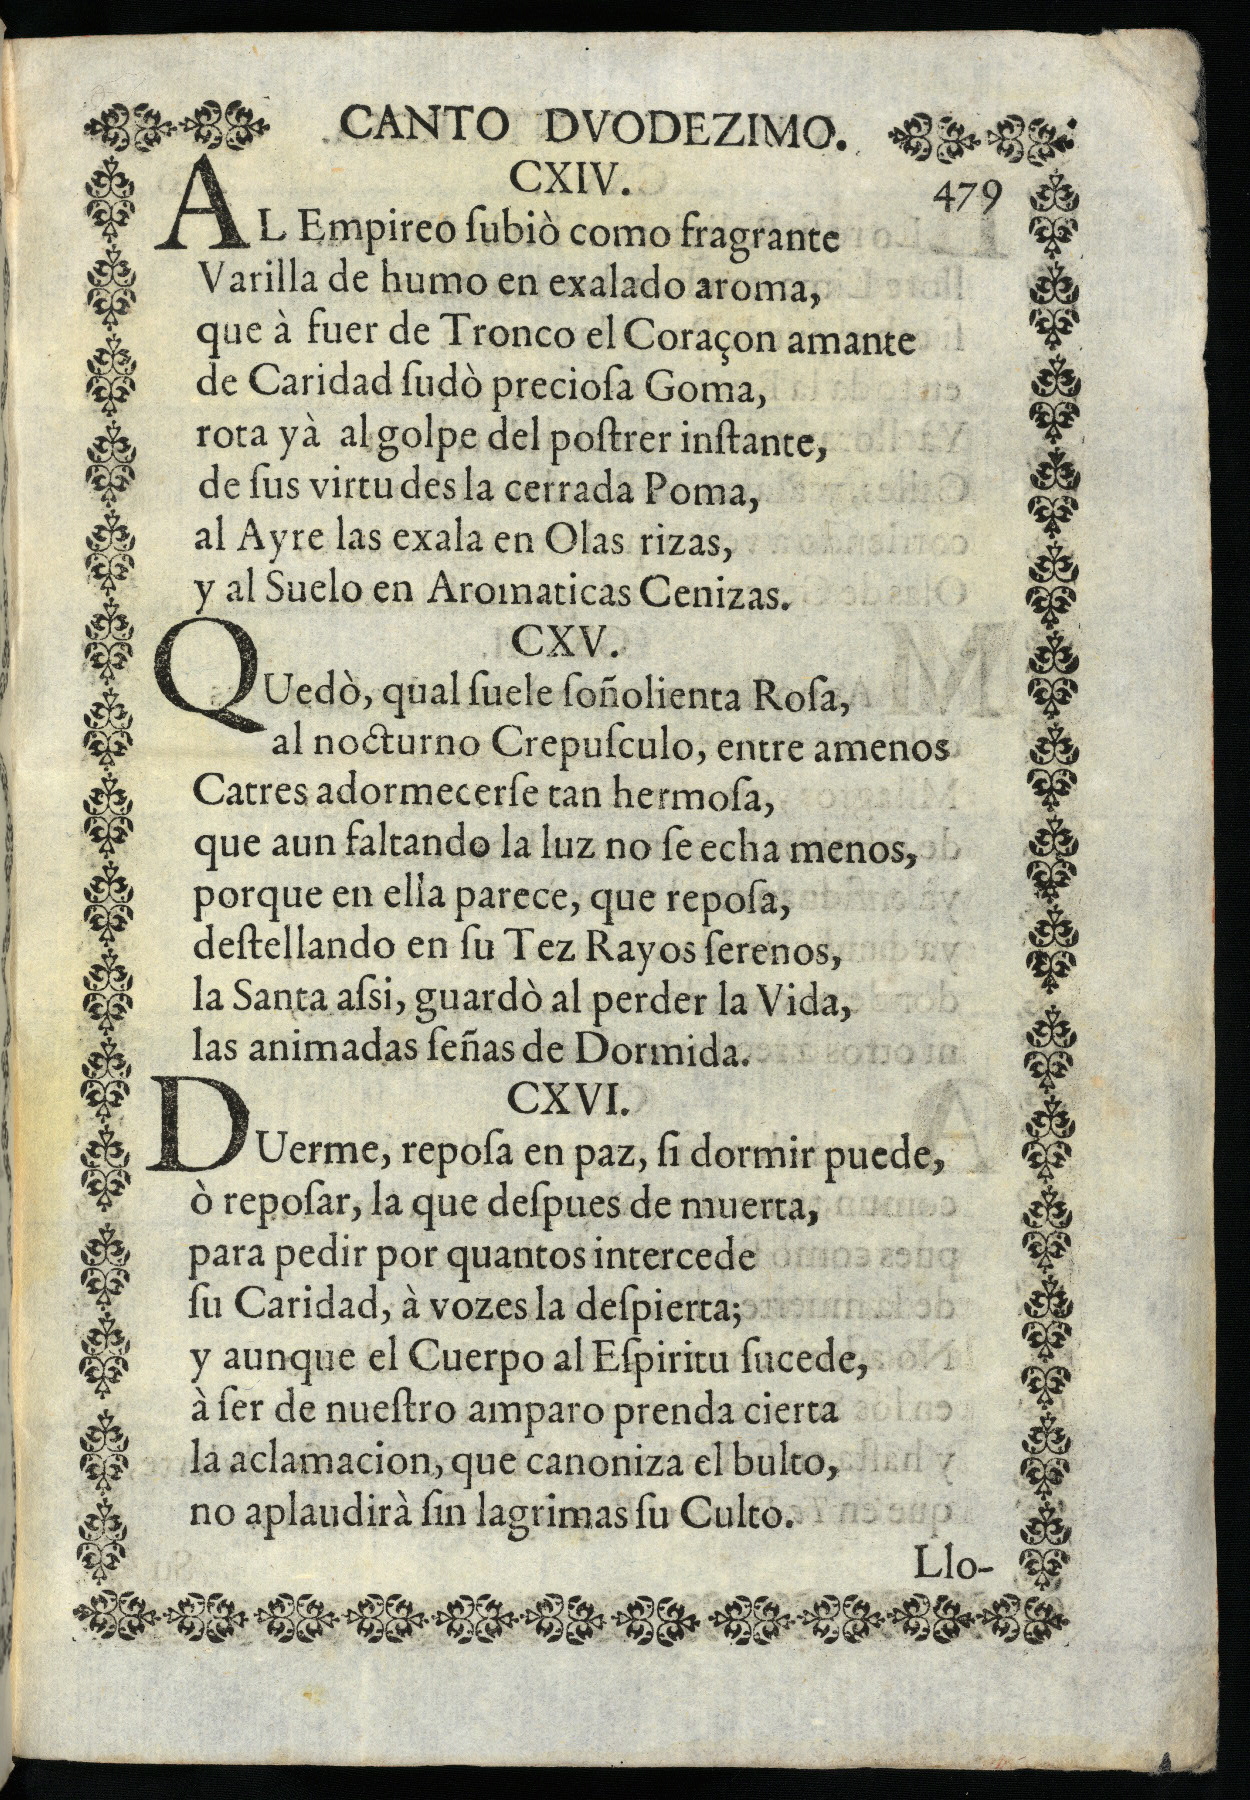 CANTO DVODEZIMO.
CXIV.
479
AL Empireo ſubiò como fragrante
Varilla de humo en exalado aroma,
que à fuer de Tronco el Coraçon amante
de Caridad ſudò precioſa Goma,
rota yà al golpe del poſtrer inſtante,
de ſus virtudes la cerrada Poma,
al Ayre las exala en Olas rizas,
y al Suelo en Aromaticas Cenizas.
CXV.
QUedò, qual ſuele ſoñolienta Roſa,
al nocturno Crepuſculo, entre amenos
Catres adormecerſe tan hermoſa,
que aun faltando la luz no ſe echa menos,
porque en ella parece, que repoſa,
deſtellando en ſu Tez Rayos ſerenos,
la Santa aſsi, guardò al perder la Vida,
las animadas ſeñas de Dormida.
CXVI.
DUerme, repoſa en paz, ſi dormir puede,
ò repoſar, la que deſpues de muerta,
para pedir por quantos intercede
ſu Caridad, à vozes la deſpierta;
y aunque el Cuerpo al Eſpiritu ſucede,
à ſer de nueſtro amparo prenda cierta
la aclamacion, que canoniza el bulto,
no aplaudirà ſin lagrimas ſu Culto.
Llo-